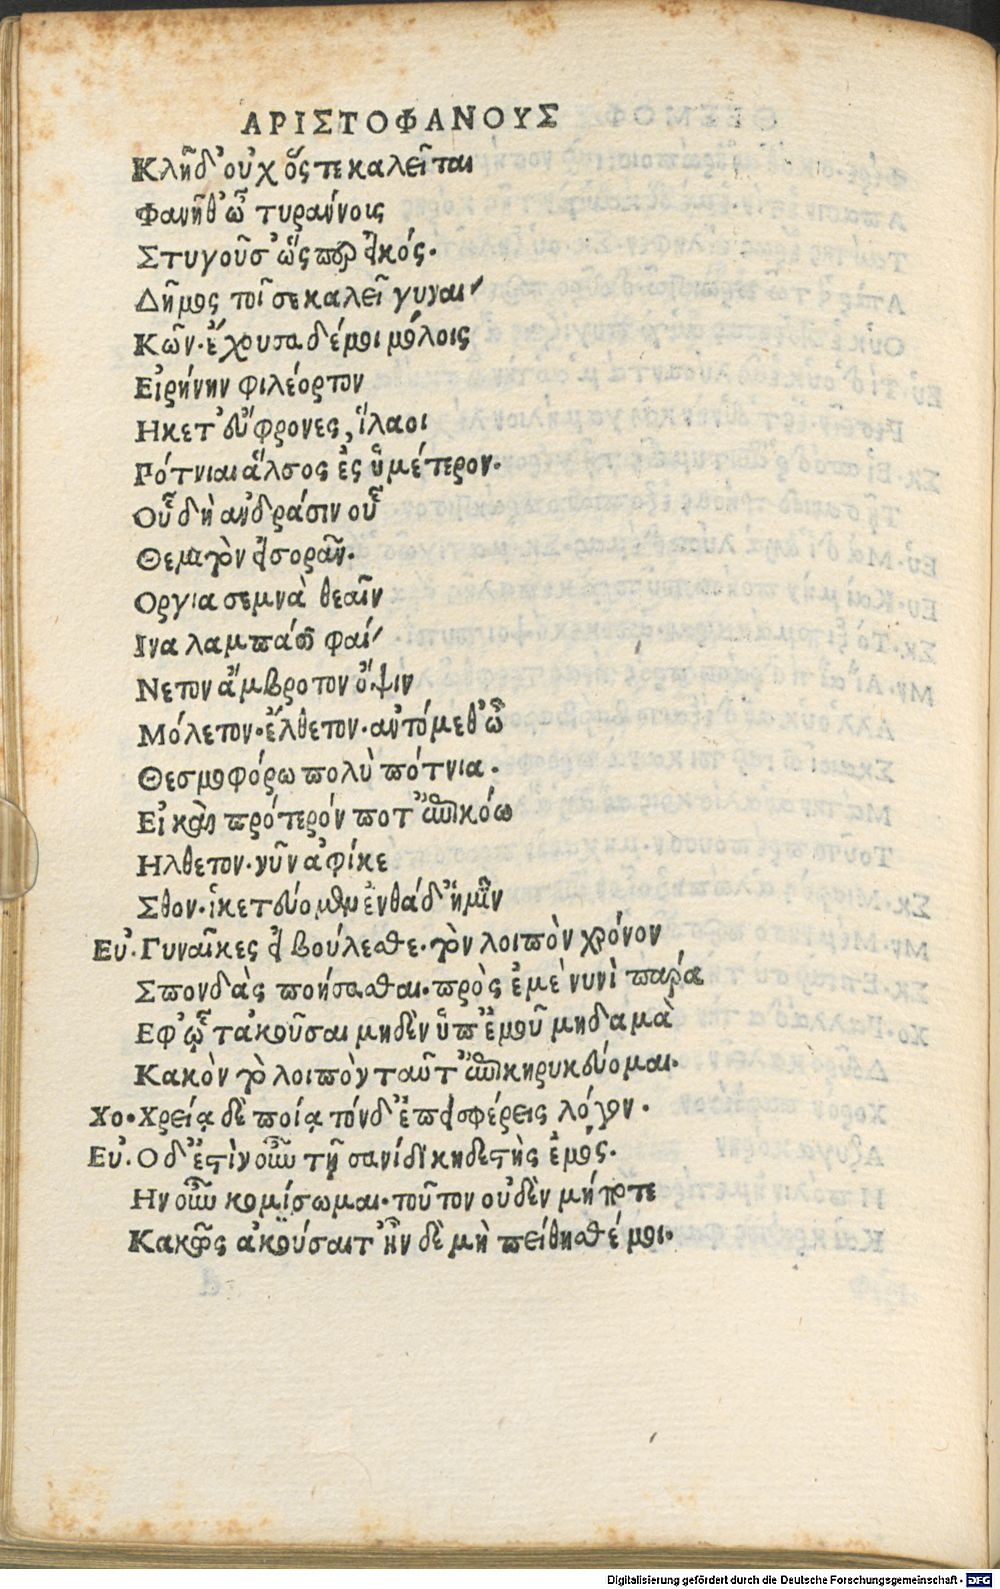 ΑΡΙΣΤΟΦΑΝΟΥΣ
Κλῃδ᾽οὐχ ὅς τε καλεῖται
Φανῆθ᾽ὦ τυράννοις
Στυγοῦσ᾽ὥς περ εἰκός.
Δῆμος τοῖ σε καλεῖ γυναι
Κῶν. ἔχουσα δ᾽ἐμοι μόλοις
Εἰρήνην φιλέορτον
Ηκετ᾽ εὔφρονες, ἵλαοι
Πότνιαι ἄλσος ἐς ὑμέτερον.
Οὗ δὴ ἀνδράσιν οὗ
Θεμιτὸν εἰσορᾶν.
Οργια σεμνὰ θεαῖν
Ινα λαμπάσι φαί
Νετον ἄμβροτον ὄψιν
Μόλετον. ἔλθετον. αὐτόμεθ᾽ὦ
Θεσμοφόρω πολὺ πότνια.
Εἰ καὶ πρότερόν ποτ᾽ἐπικόω
Ηλθετον. νῦν ἀφίκε
Σθον. ἱκετεύομεν ἐνθάδ᾽ἡμῖν
Ευ. Γυναῖκες εἰ βούλεσθε. τὸν λοιπὸν χρόνον
Σπονδὰς ποήσασθαι. πρὸς ἐμὲ νυνὶ παρά
Εφ᾽ᾧ τ᾽ἀκοῦσαι μηδὲν ὑπ᾽ἐμοῦ μηδαμὰ
Κακὸν τὸ λοιπὸν ταῦτ᾽ἐπικηρυκεύομαι.
Χο. Χρείᾳ δὲ ποίᾳ τόνδ᾽ἐπεισφέρεις λόγον.
Ευ. Οδ᾽ἐστὶν οὖν τῇ σανίδι κηδεστὴς ἐμός.
Ην οὖν κομίσωμαι. τοῦτον οὐδὲν μήποτε
Κακῶς ἀκούσαιτ᾽ ἢν δὲ μὴ πείθησθέ μοι.
Digitalisierung gefördert durch die Deutsche Forschungsgemeinschaft - DFG